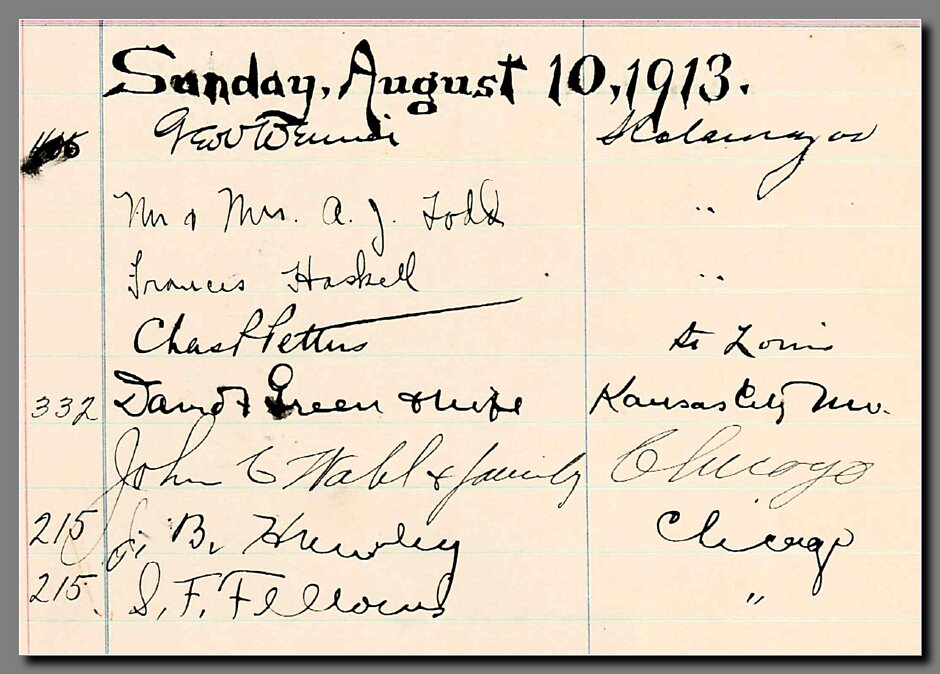 Sunday, August 10, 1913.
Geo Kalamazoo
Mr & Mrs. A. J. Todd "
Frances Haskell "
Chas P Pettus St Louis
332 David Green & wife Kansas City Mo.
John C Wahl & family Chicago
215 J. B. Chicago
215. S. F. Fellows "